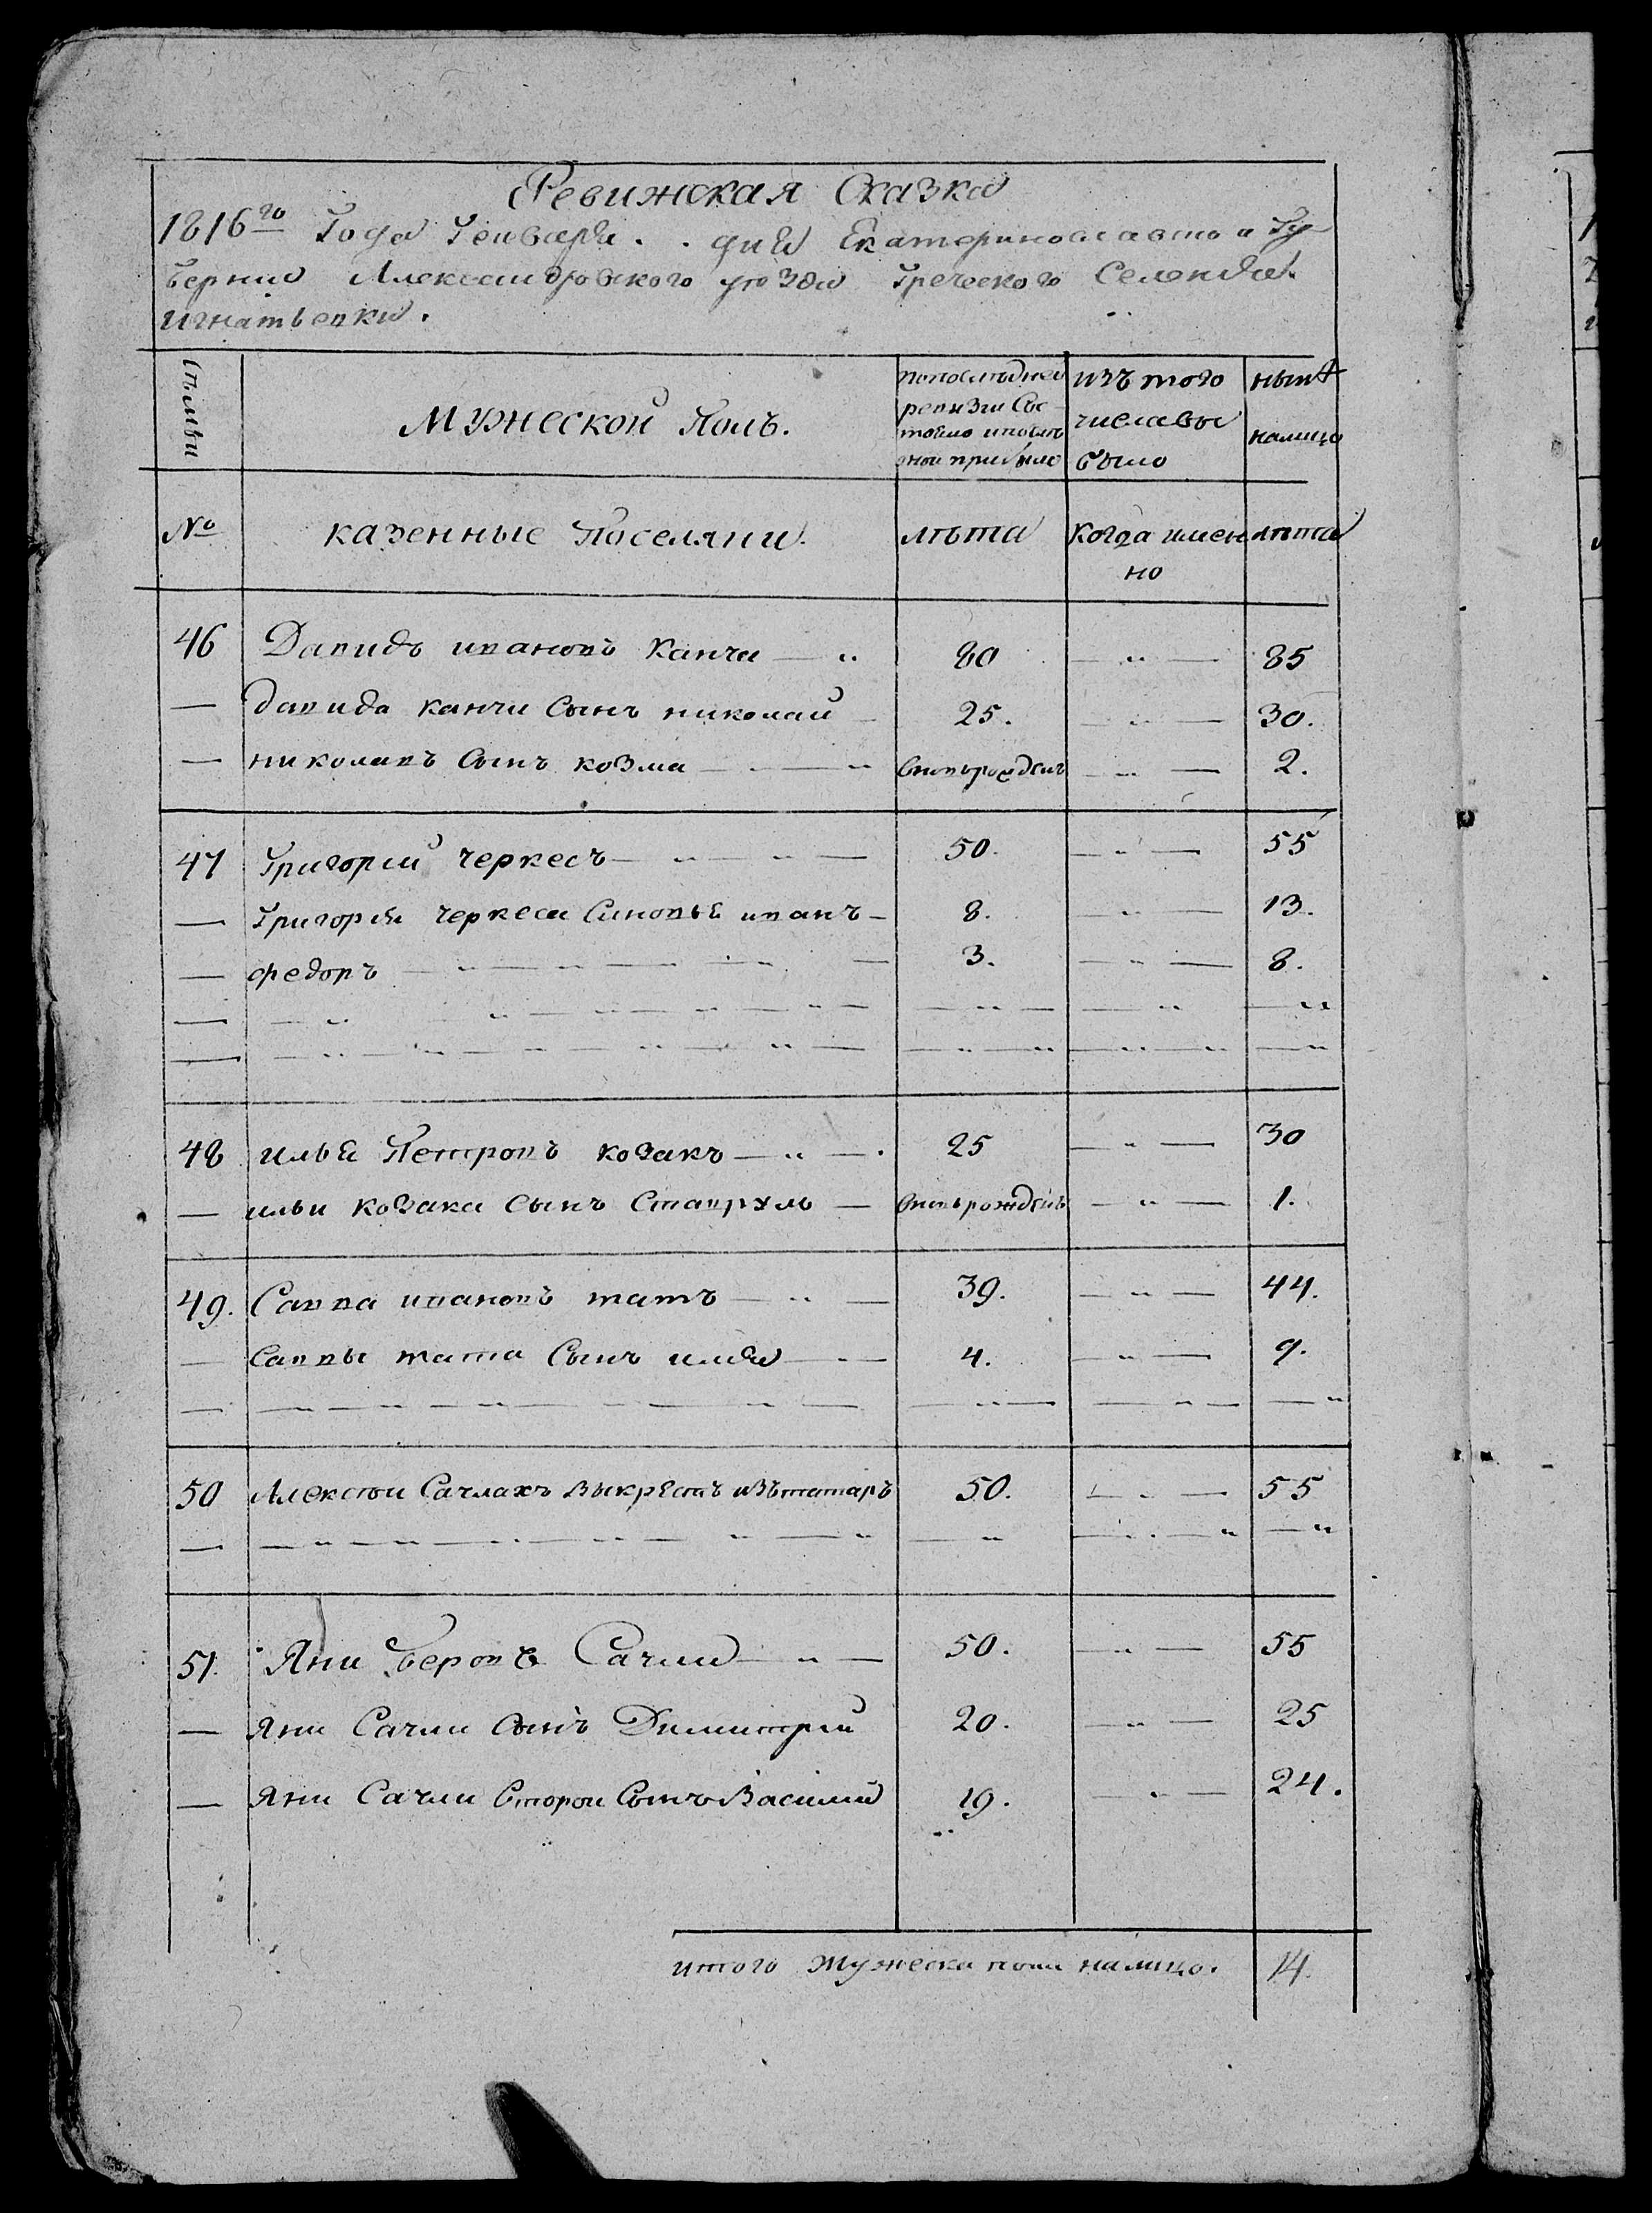 Ревижская Сказка
1816го Года Генваря . . дня Екатеринославской Гу-
бернии Александровского уезда Греческого Селения
игнатьевки.
Семьи
Мужеской Полъ.
попоследней ревизии Состояло и после оной прибыло
изъ того числа выбыло
ныне налицо
№
казенные Поселяни.
лета
когда имен
лета
но
46 Давидъ ивановъ Канчи — „ 80 — „ — 85
— давида канчи Сынъ николай — 25. — „ — 30.
— николаевъ Сынъ козма — „ — „ вновьрожденъ — „ — 2.
47 Григорий черкесъ — „ — „ — 50. — „ — 55
— Григория черкеса Синовья иванъ — 8. „ — 13.
— федоръ — „ — „ — 3. — „ — 8.
48 илья Петровъ козакъ — „ — . 25 — „ — 30
— ильи козака Сынъ Ставруль — вновьрожденъ — „ — 1.
49. Савва ивановъ татъ — „ — 39. — „ — 44.
— Саввы тата Сынъ илия — „ — 4. — „ — 9.
50 Алексеи Сачлахъ выкрестъ изътатаръ 50. — „ — 55
51. Яни Беровъ Сачли — „ — 50. — „ — 55
— яни Сачли Сынъ Димитрий 20. — „ — 25
— яни Сачли второи Сынъ Василий 19. — „ — 24.
итого мужеска пола налицо. 14.